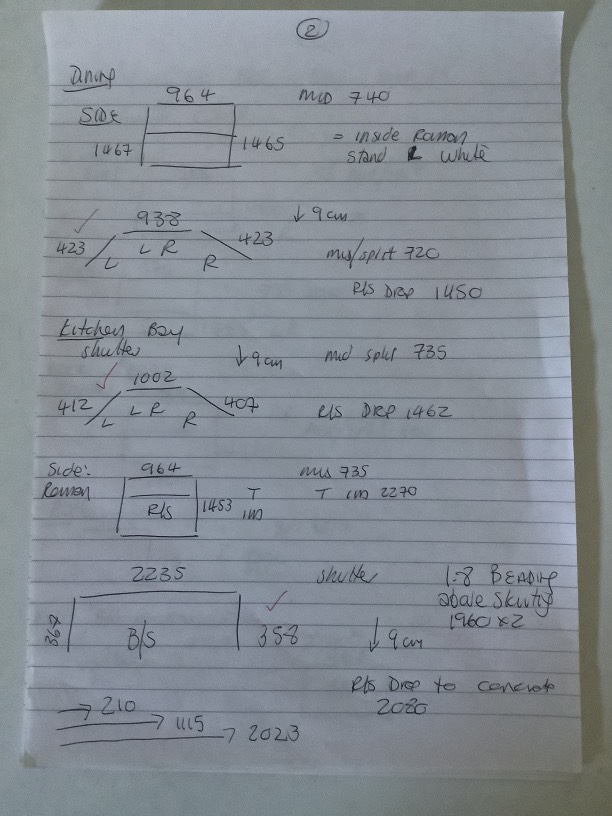 2
Dining
964
mid 740
SIDE
1467
1465
= inside Roman
stand L white
938
↓ 9cm
423
423
L L R R
mid/split 720
R/S Drop 1450
Kitchen Bay
shutter
↓ 9cm
mid split 735
1002
412
407
L L R R
R/S DROP 1462
Side:
964
mid 735
Roman
R/S
1453
T
1m
T 1m 2270
2235
shutter
1.8 BEADING
above skirting
1960 x 2
B/S
358
↓ 9cm
R/S Drop to concrete
2080
→ 210
→ 1115
→ 2023